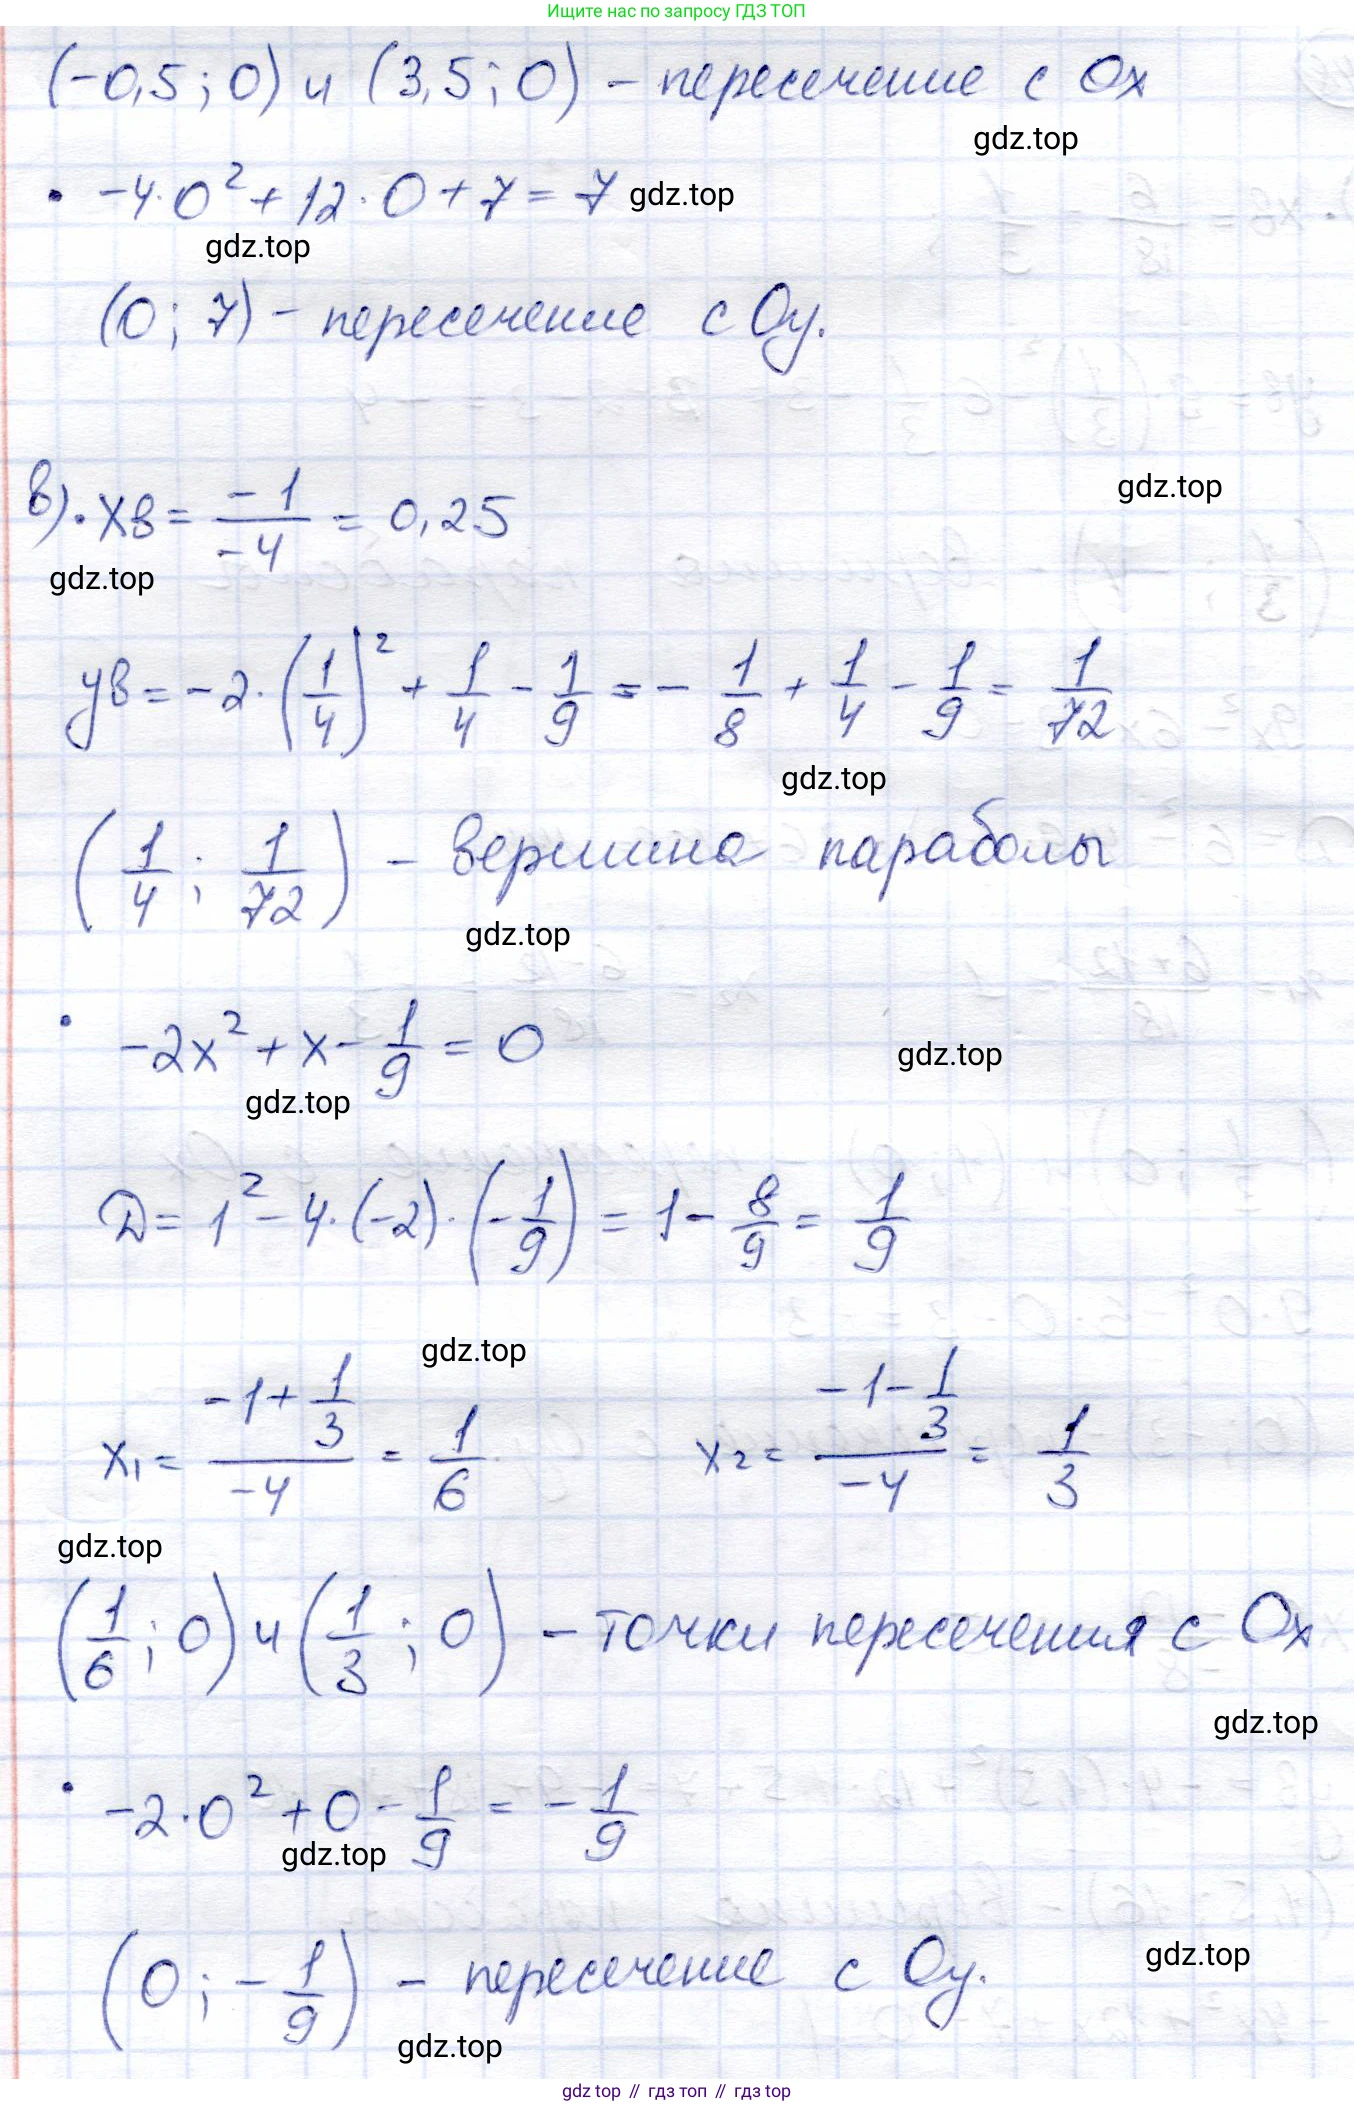 Ищите нас по запросу ГДЗ ТОП
(-0,5; 0) и (3,5; 0) - пересечение с Ox
gdz.top
• -4·0² + 12·0 + 7 = 7 gdz.top
gdz.top
(0; 7) - пересечение с Oy.
gdz.top
в). • xв = -1/-4 = 0,25
gdz.top
yв = -2·(1/4)² + 1/4 - 1/9 = - 1/8 + 1/4 - 1/9 = 1/72
gdz.top
(1/4; 1/72) - вершина параболы
gdz.top
• -2x² + x - 1/9 = 0
gdz.top
gdz.top
D = 1² - 4·(-2)·(-1/9) = 1 - 8/9 = 1/9
gdz.top
x₁ = (-1 + 1/3)/-4 = 1/6 x₂ = (-1 - 1/3)/-4 = 1/3
gdz.top
(1/6; 0) и (1/3; 0) - точки пересечения с Ox
gdz.top
• -2·0² + 0 - 1/9 = - 1/9
gdz.top
(0; - 1/9) - пересечение с Oy.
gdz.top
gdz.top
gdz top // гдз топ // гдз top